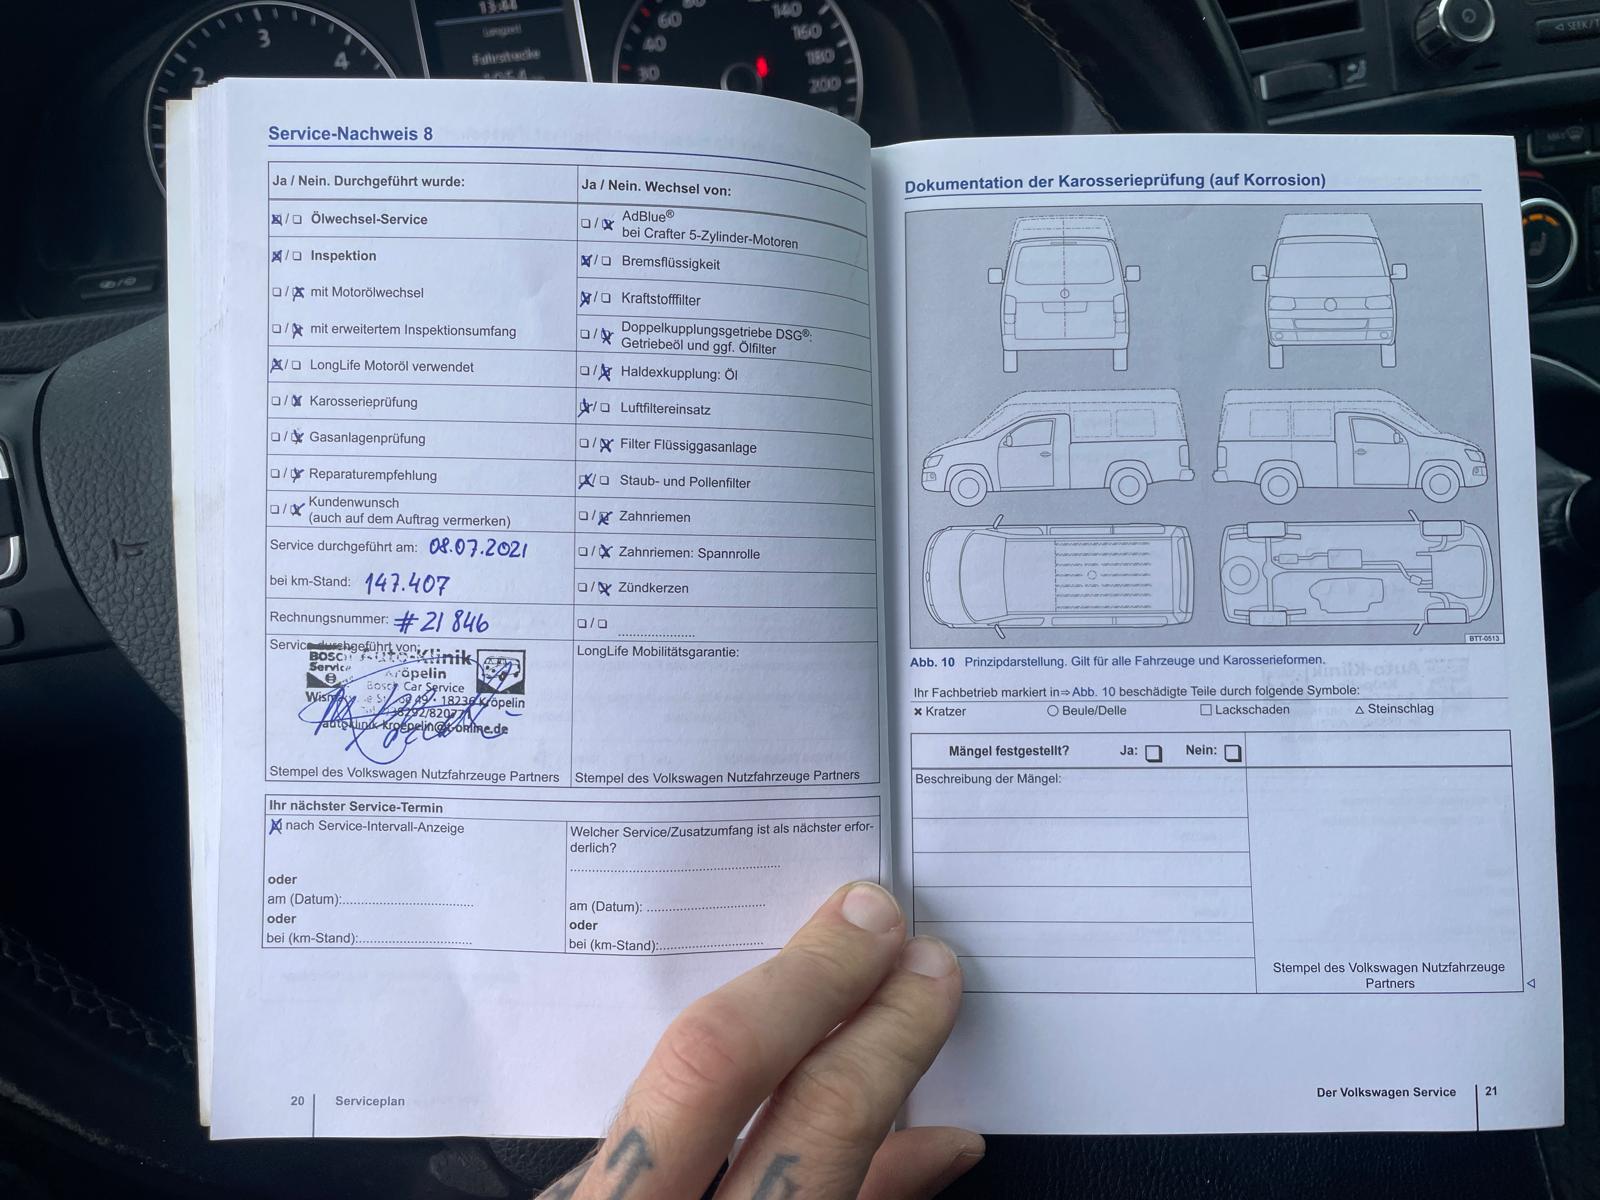 13:44
Langzeit
Fahrstrecke
2
3
4
30
40
60
80
140
160
180
200
SEEK/T
Service-Nachweis 8
Ja / Nein. Durchgeführt wurde:
Ölwechsel-Service
Inspektion
mit Motorölwechsel
mit erweitertem Inspektionsumfang
LongLife Motoröl verwendet
Karosserieprüfung
Gasanlagenprüfung
Reparaturempfehlung
Kundenwunsch
(auch auf dem Auftrag vermerken)
Service durchgeführt am: 08.07.2021
bei km-Stand: 147.407
Rechnungsnummer: #21846
Service durchgeführt von:
BOSCH Auto-Klinik
Service Kröpelin
Bosch Car Service
49 · 18236 Kröpelin
autoklinik-kroepelin@t-online.de
Stempel des Volkswagen Nutzfahrzeuge Partners
Ja / Nein. Wechsel von:
AdBlue®
bei Crafter 5-Zylinder-Motoren
Bremsflüssigkeit
Kraftstofffilter
Doppelkupplungsgetriebe DSG®:
Getriebeöl und ggf. Ölfilter
Haldexkupplung: Öl
Luftfiltereinsatz
Filter Flüssiggasanlage
Staub- und Pollenfilter
Zahnriemen
Zahnriemen: Spannrolle
Zündkerzen
LongLife Mobilitätsgarantie:
Stempel des Volkswagen Nutzfahrzeuge Partners
Ihr nächster Service-Termin
nach Service-Intervall-Anzeige
oder
am (Datum):
oder
bei (km-Stand):
Welcher Service/Zusatzumfang ist als nächster erfor-
derlich?
am (Datum):
oder
bei (km-Stand):
20 Serviceplan
Dokumentation der Karosserieprüfung (auf Korrosion)
BTT-0513
Abb. 10 Prinzipdarstellung. Gilt für alle Fahrzeuge und Karosserieformen.
Ihr Fachbetrieb markiert in ⇒ Abb. 10 beschädigte Teile durch folgende Symbole:
× Kratzer ○ Beule/Delle □ Lackschaden △ Steinschlag
Mängel festgestellt? Ja: Nein:
Beschreibung der Mängel:
Stempel des Volkswagen Nutzfahrzeuge
Partners
Der Volkswagen Service 21